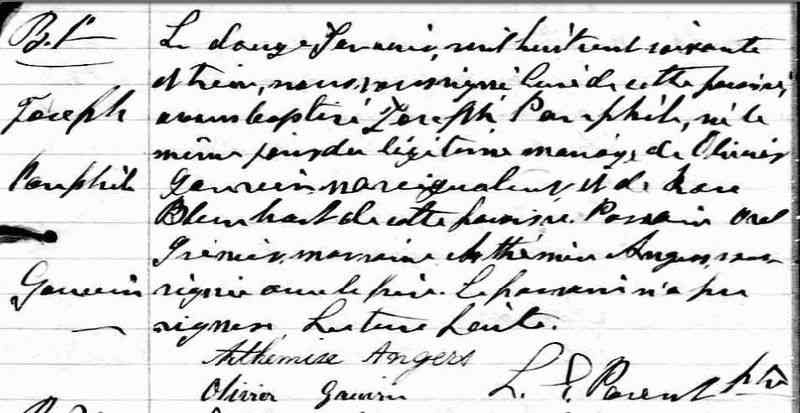 B. 1er
Le douze Janvier, mil huit cent soixante
et treize, nous, soussigné Curé de cette paroisse,
Joseph
avons baptisé Joseph Pamphile, né le
même jour du légitime mariage de Olivier
Pamphile
Gauvin navigateur et de
Blanchart de cette paroisse. Parrain
Grenier, marraine Arthémise Angers, sous
Gauvin
signée avec le père. Le parrain n'a pu
signer. Lecture faite.
Arthémise Angers
Olivier Gauvin L. E. Parent ptre